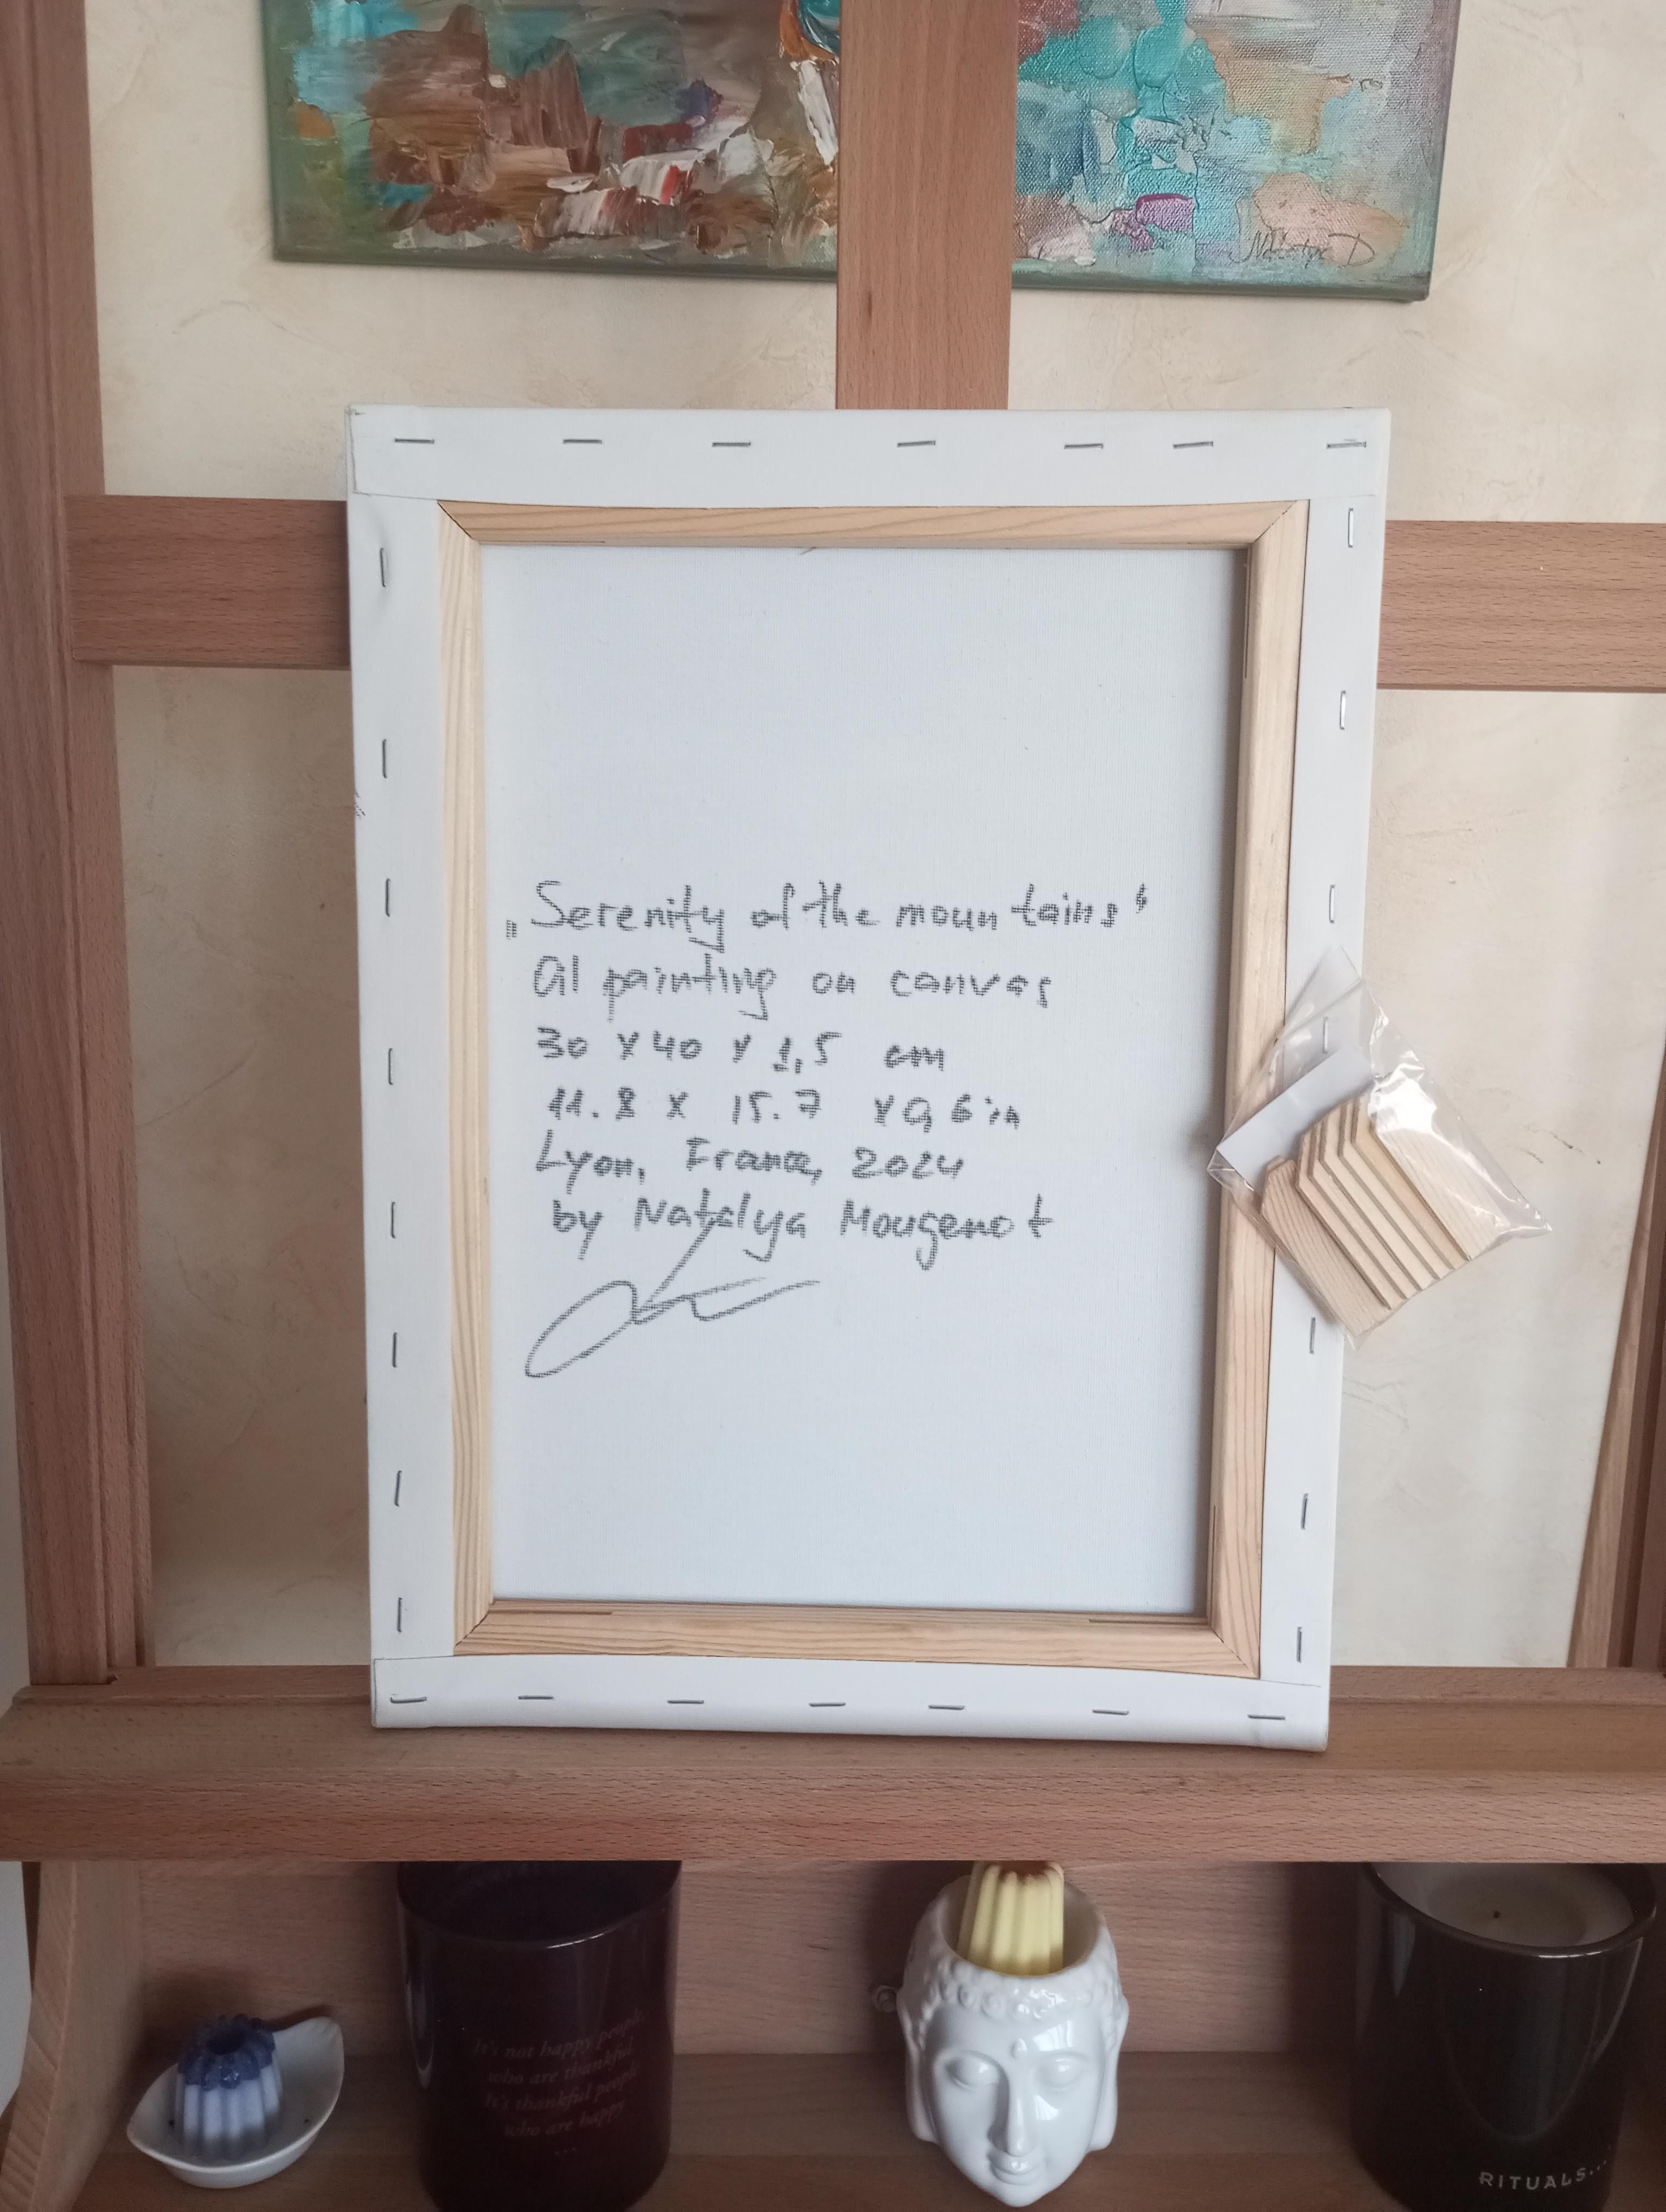 Natalya D
„Serenity of the mountains"
Oil painting on canvas
30 x 40 x 1,5 cm
11.8 x 15.7 x 0,6 in
Lyon, France, 2024
by Natalya Mougenot
It's not happy people
who are thankful.
It's thankful people
who are happy.
...
RITUALS...